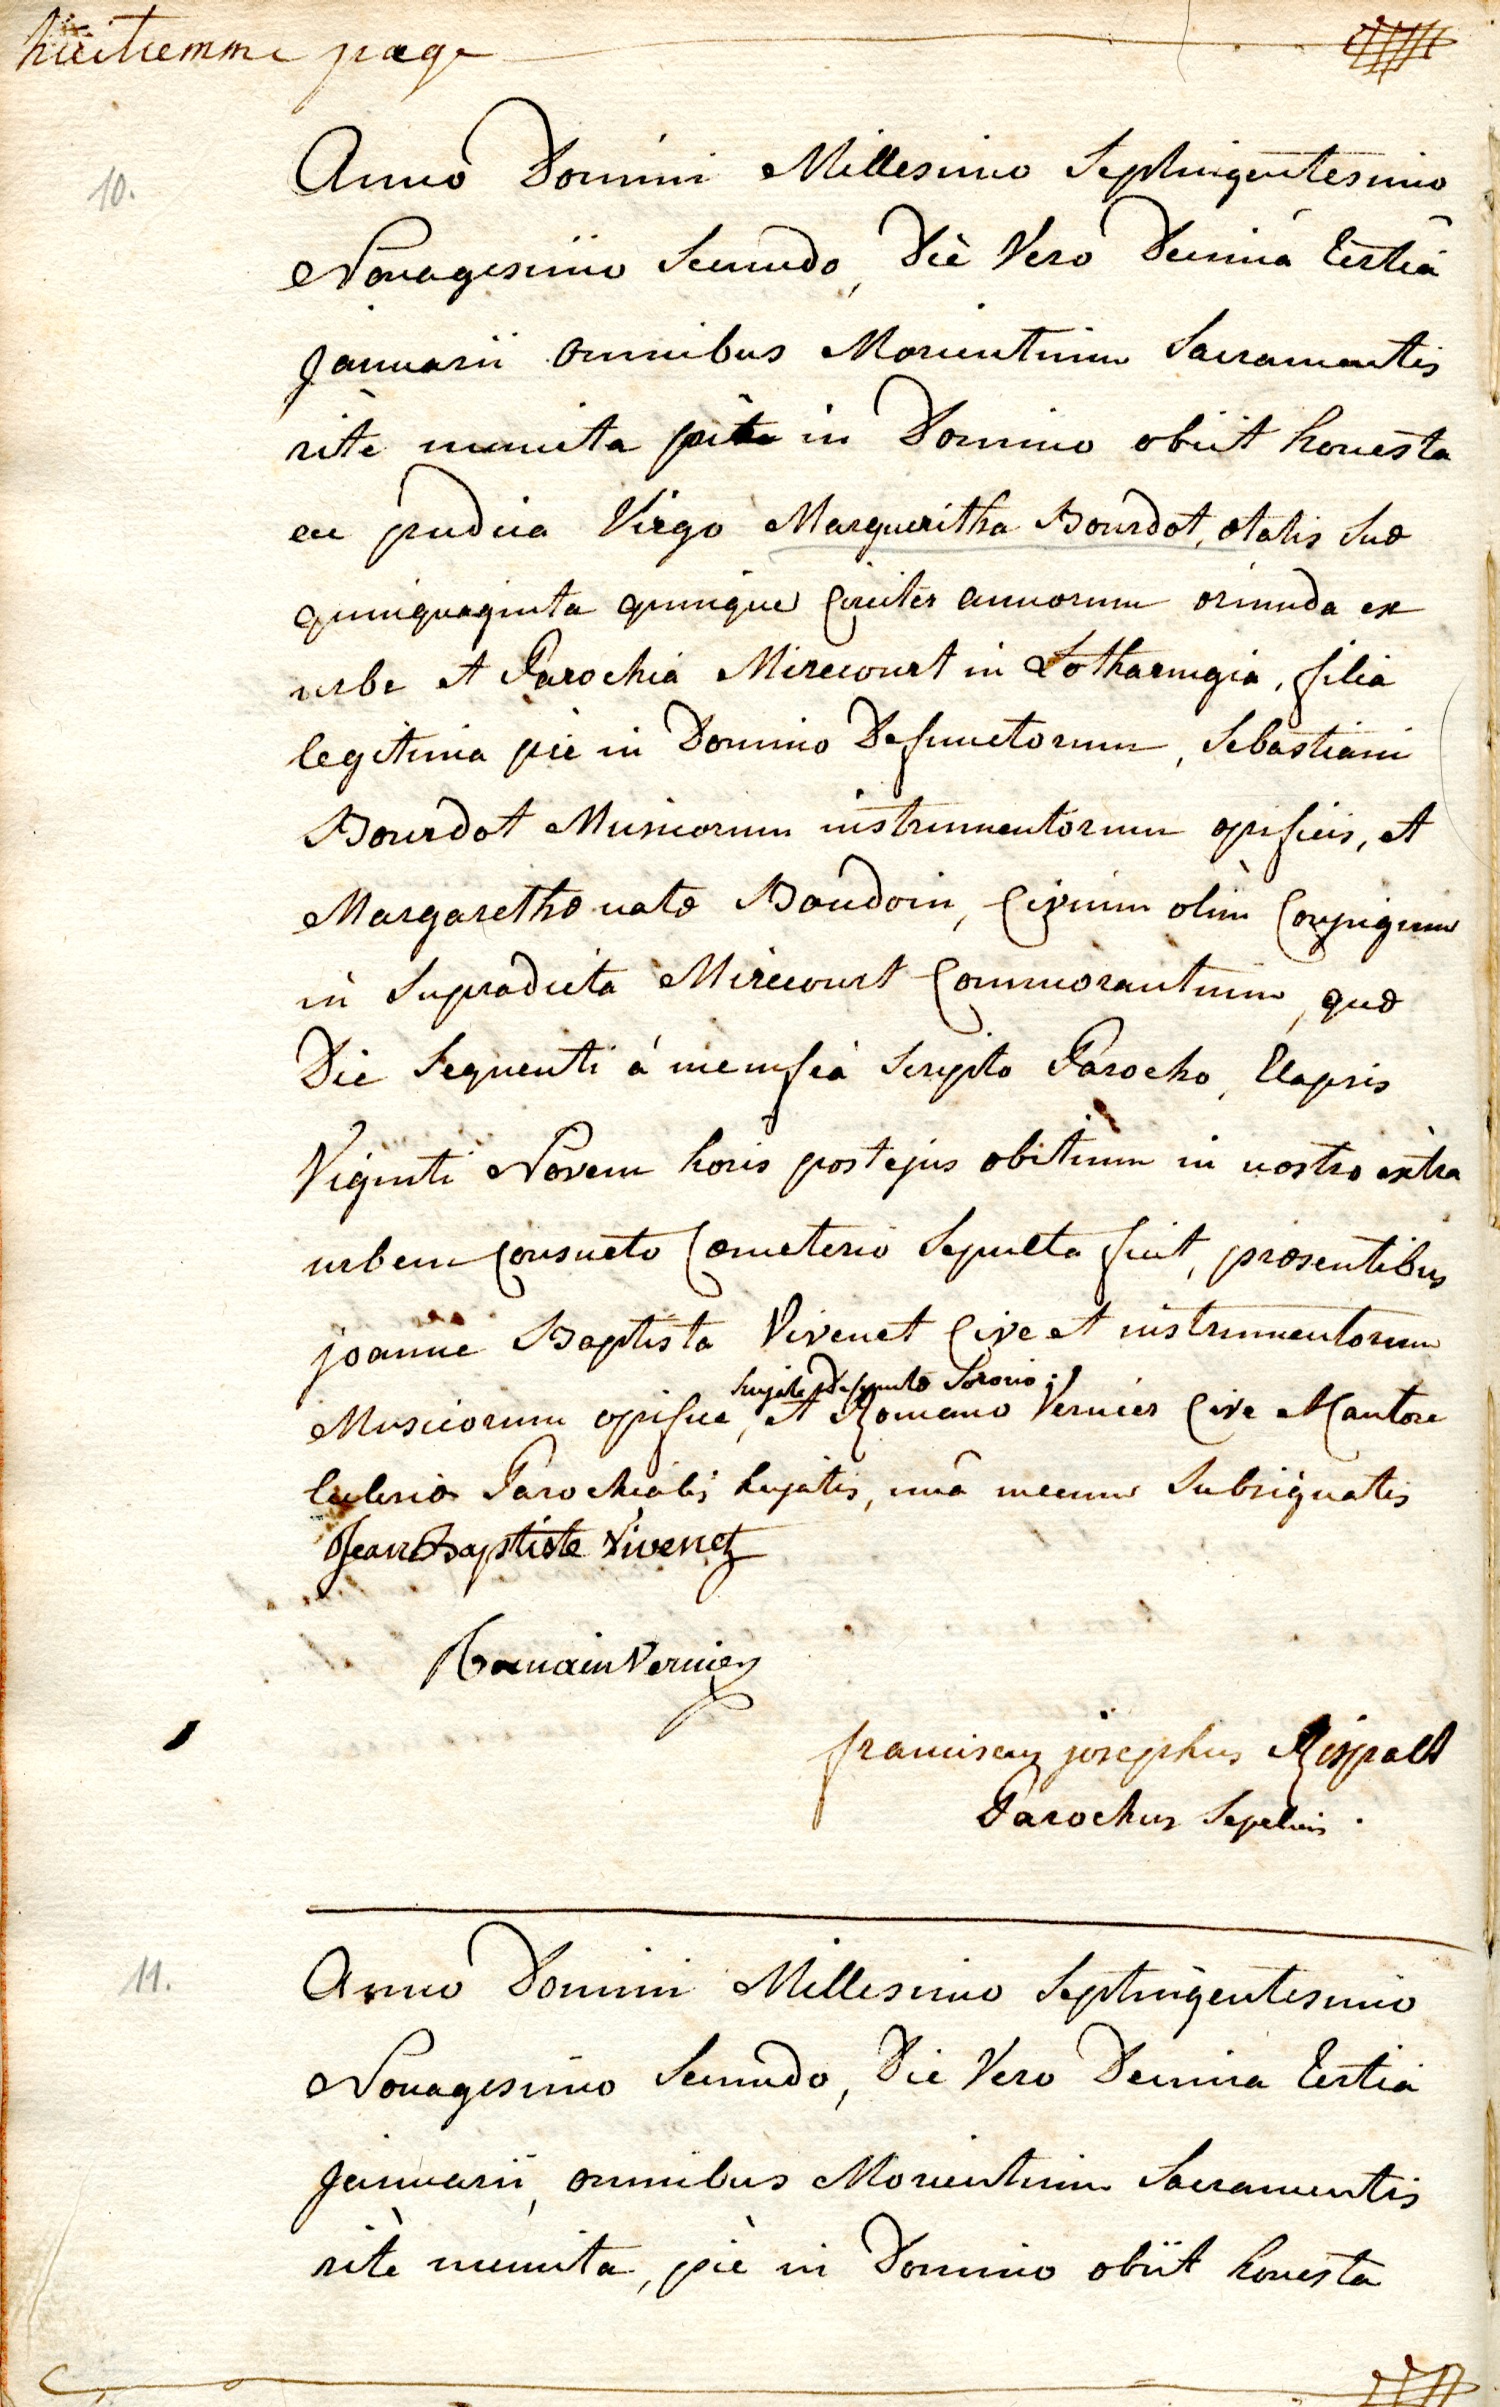 huitiemme page
10.
Anno Domini Millesimo Septingentesimo
Nonagesimo Secundo, Diè Vero Decimâ Tertiâ
januarii omnibus Morientium Sacramentis
ritè munita piè in Domino obiit honesta
ac pudica Virgo Margueritha Bourdot, ætatis Suæ
quinquaginta quinque Circiter annorum oriunda ex
urbe et Parochiâ Mirecourt in Lotharingia, filia
legitima piè in Domino Defunctorum, Sebastiani
Bourdot Musicorum instrumentorum opificis, et
Margarethæ natæ Baudoin, Civium olim Conjugum
in Supradicta Mirecourt Commorantium, quæ
Die Sequenti á me infrà Scripto Parocho, Elapsis
Viginti Novem horis post ejus obitum in nostro extra
urbem Consueto Cœmeterio Sepulta fuit, præsentibus
joanne Baptista Vivenet Cive et instrumentorum
hujate, Defunctæ Sororio;
Musicorum opifice, et Romano Vernier Cive Cantore
Ecclesiæ Parochialis hujatis, unâ mecum Subsignatis
Jean Baptiste Vivenet
Romain Vernier
franciscus josephus Rispalt
Parochus Sepeliens.
11.
Anno Domini Millesimo Septingentesimo
Nonagesimo Secundo, Die Vero Decima Tertia
januarii, omnibus Morientium Sacramentis
ritè munita, piè in Domino obiit honesta